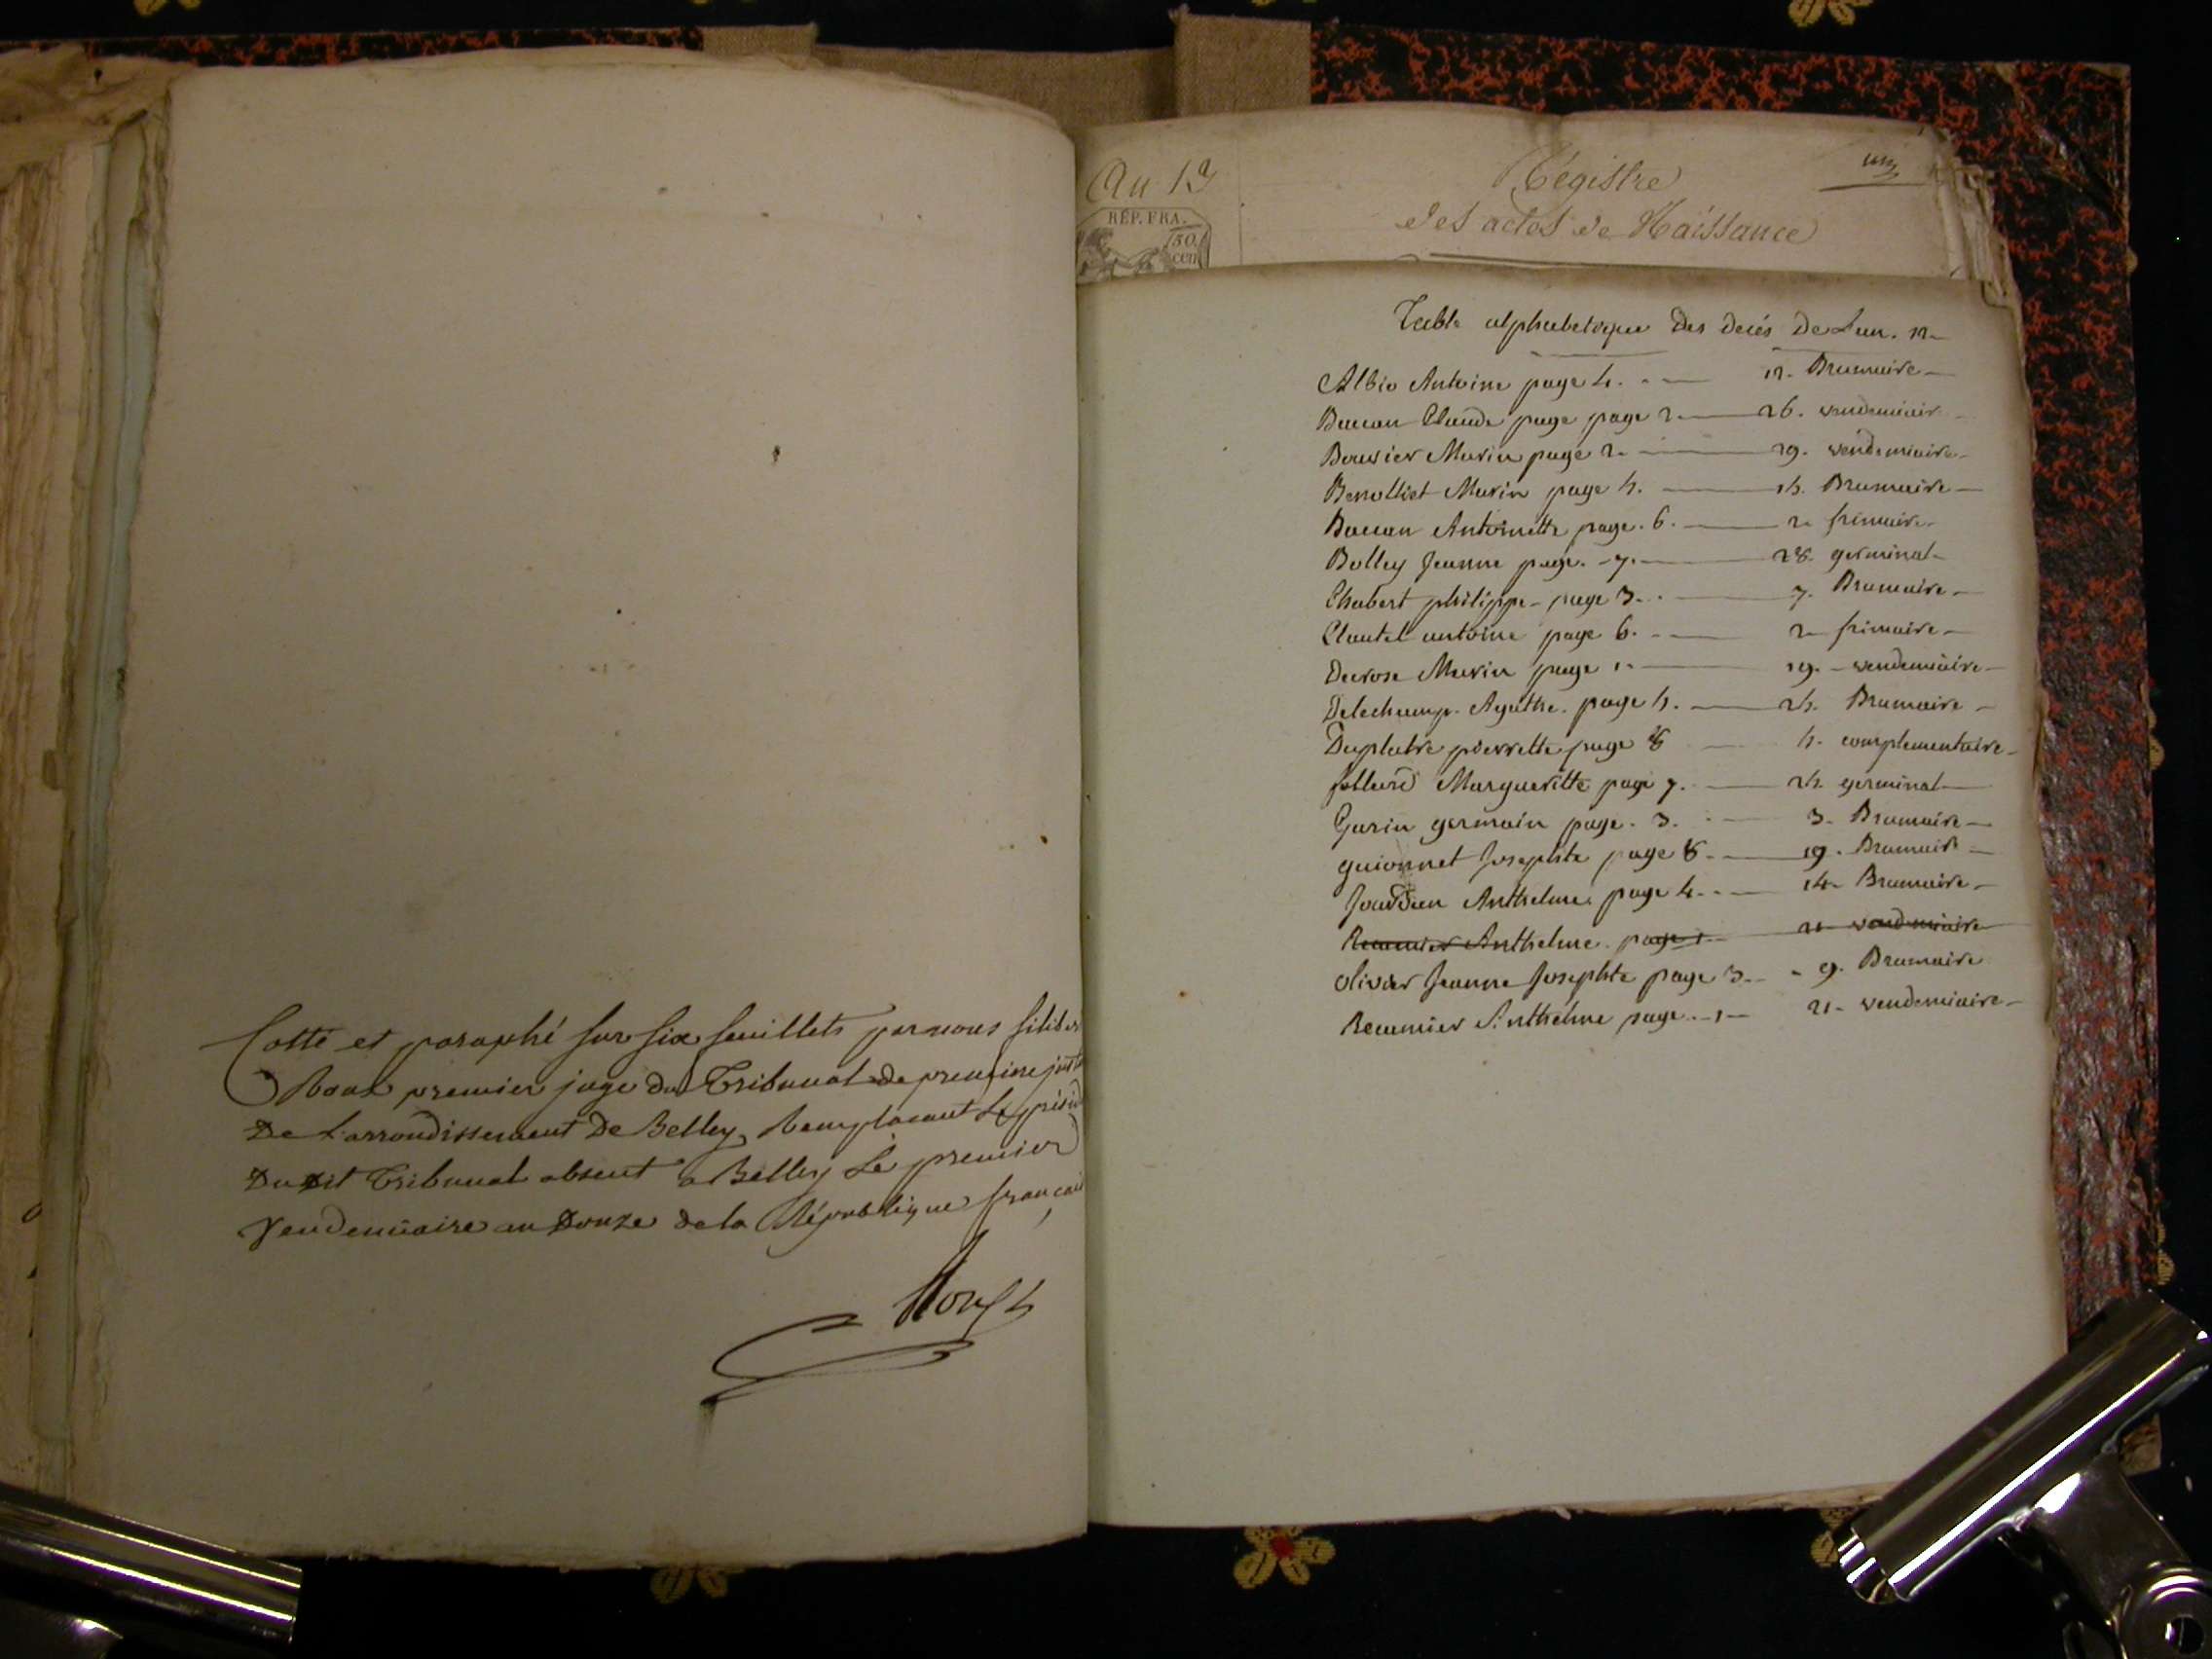 Cotté et paraphé sur six feuillets par nous
Roux premier juge du Tribunal de premiere
De l'arrondissement De Belley, Remplacant Le
Dudit Tribunal absent a Belley Le premier
Vendemiaire an Douze de la République
An 12
RÉP. FRA.
50
cen
Régistre
des actes de Naissance
Table alphabetique des decés De Lan. 12
Albin Antoine page 4. 12. Brumaire
Baccon Claude page page 2 26. vendemiair
Bouvier Marin page 2. 29. vendemiaire
Benollict Marin page 4. 14. Brumaire
Baccon Antoinette page. 6. 2 frimaire
Bolley Jeanne page. 7. 28. germinal
Chabert philippe page 3. 7. Brumaire
Clautel antoine page 6. 2 frimaire
Decrose Marin page 1. 19. vendemiaire
Delechamp. Agathe. page 4. 24. Brumaire
Duplatre pierrette page 8 4. complementaire
Margueritte page 7. 24. germinal
Garin germain page. 3. 3. Brumaire
guionnet Josephte page 8. 19. Brumaire
Jourdan Anthelme page 4. 14. Brumaire
Recumier Anthelme. page 1 21 vendemiaire
Olivier Jeanne Josephte page 3 9. Brumaire
Recumier Anthelme page. 1 21. vendemiaire